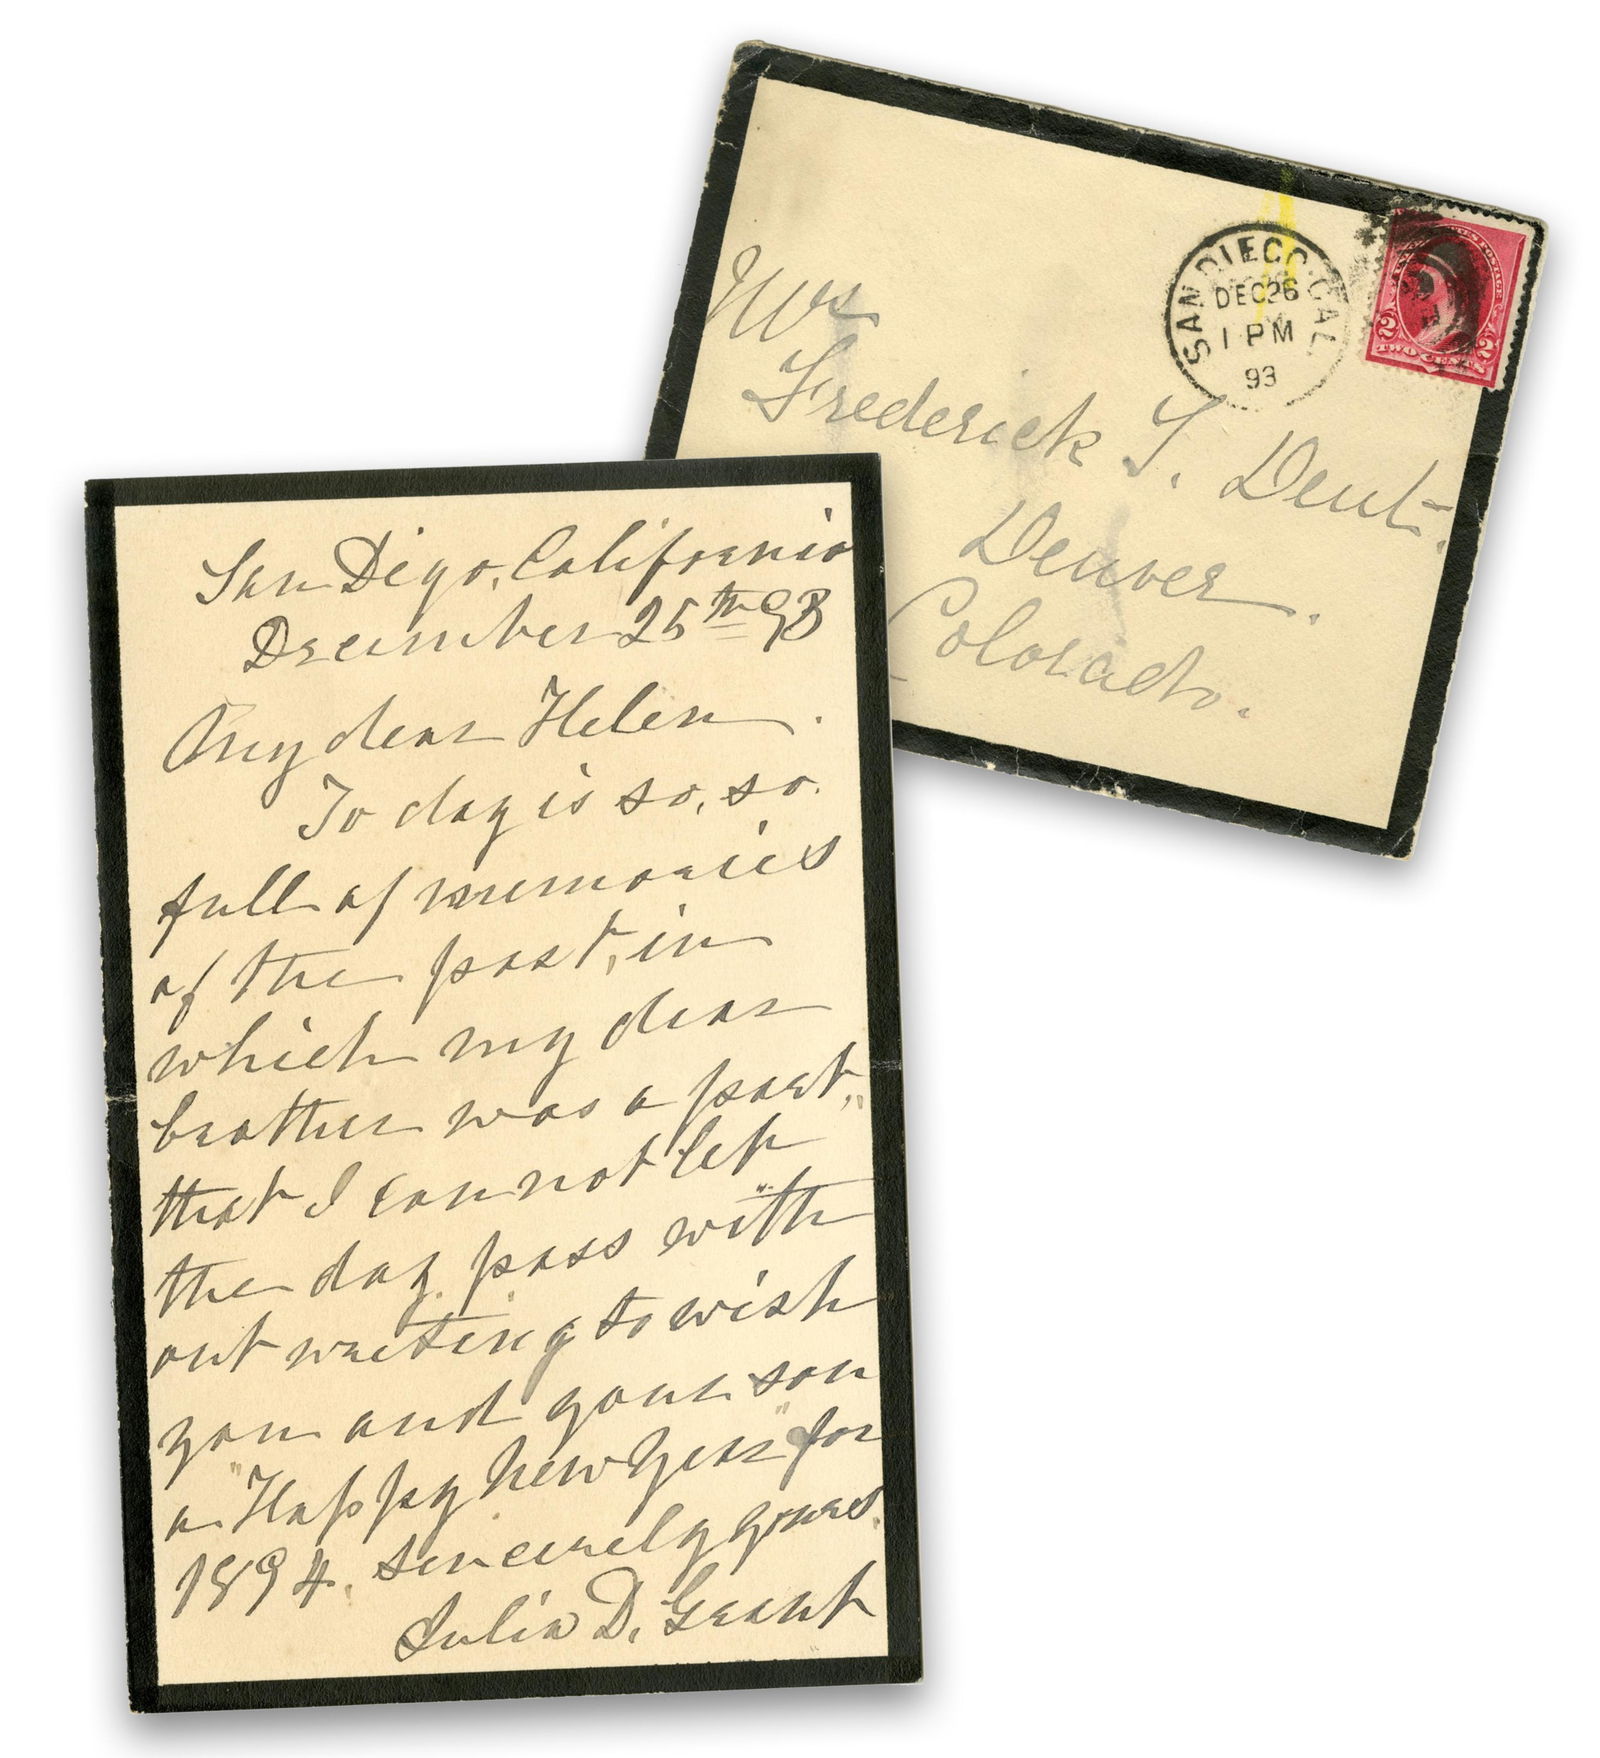 San Diego, California
December 25th 93
My dear Helen.
To day is so, so.
full of memories
of the past, in
which my dear
brother was a part,
that I can not let
the day pass with
out writing to wish
you and your son
a "Happy New Year" for
1894. Sincerely yours.
Julia D. Grant
SAN DIEGO. CAL.
DEC 26
1 PM
93
UNITED STATES POSTAGE
2 2
TWO CENTS
Mrs
Frederick T. Dent.
Denver.
Colorado.